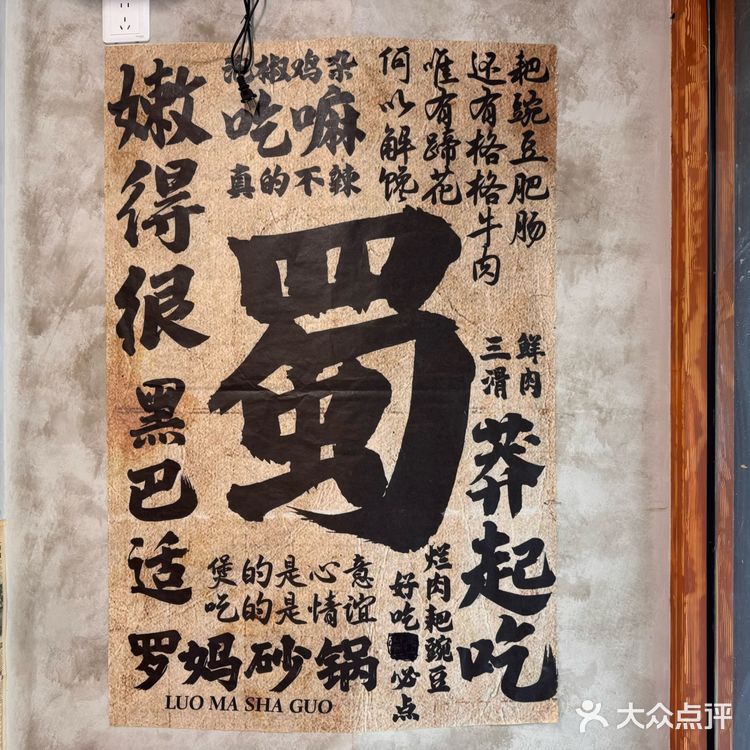 嫩得很
黑巴适
椒鸡杂
吃嘛
真的不辣
耙豌豆肥肠
还有格格牛肉
唯有蹄花
何以解馋
蜀
鲜肉
三滑
莽起吃
煲的是心意
吃的是情谊
烂肉耙豌豆
好吃 必点
罗妈砂锅
LUO MA SHA GUO
大众点评